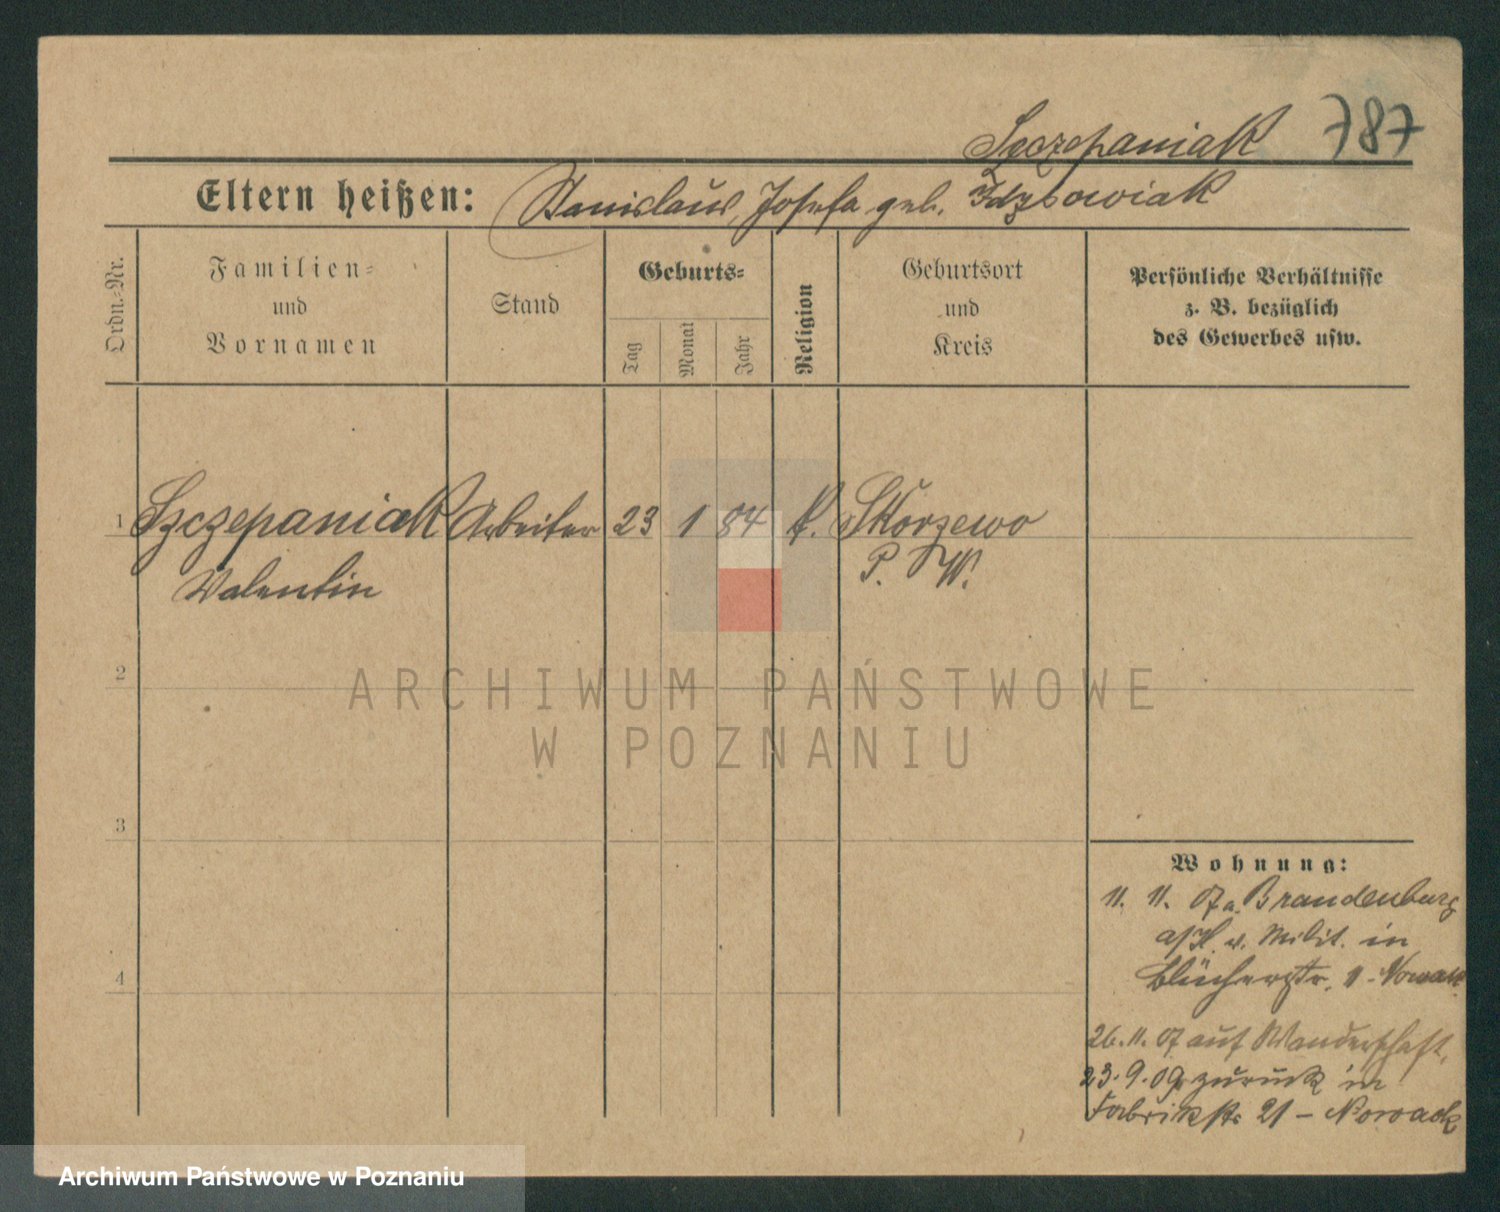 Szczepaniak 787
Eltern heißen: Stanislaus, Josefa geb. Idzsowiak
Ordn.-Nr.
Familien-
und
Vornamen
Stand
Geburts-
Tag
Monat
Jahr
Religion
Geburtsort
und
Kreis
Persönliche Verhältnisse
z. B. bezüglich
des Gewerbes usw.
1 Szczepaniak Arbeiter 23 1 84 k. Skorzewo
Valentin P. W.
2
ARCHIWUM PAŃSTWOWE
W POZNANIU
3
Wohnung:
11. 11. 07 a. Brandenburg
a/H. v. Milit. in
Blücherstr. 11 - Nowack
4
26.11.07 auf Wanderschaft.
23.9.09 zurück in
Fabrikstr 21 – Nowack
Archiwum Państwowe w Poznaniu